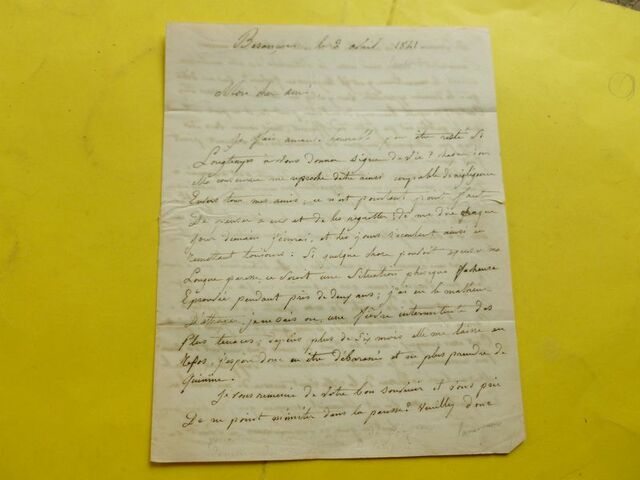 Besançon, le 3 avril 1841
Mon cher ami
Je suis
être resté si
Longtemps à vous donner signe de vie ? chaque jour
Ma conscience me reproche d'être aussi coupable de négligence
Envers tous mes amis, ce n'est pourtant pas faute
De penser à eux et de les regretter ; de me dire chaque
Jour demain j'écrirai, et les jours s'écoulent ainsi en
remettant toujours : Si quelque chose pouvait excuser ma
Longue paresse, ce seroit une Situation physique fâcheuse
Eprouvée pendant près de deux ans ; j'ai eu le malheur
D'attraper, je ne sais où, une fièvre intermittente des
Plus tenaces ; depuis plus de six mois elle me laisse en
repos, j'espère donc en être débarassé et ne plus prendre de
Quinine.
Je vous remercie de votre bon souvenir et vous prie
De ne point m'imiter dans la paresse ? Veuillez donc